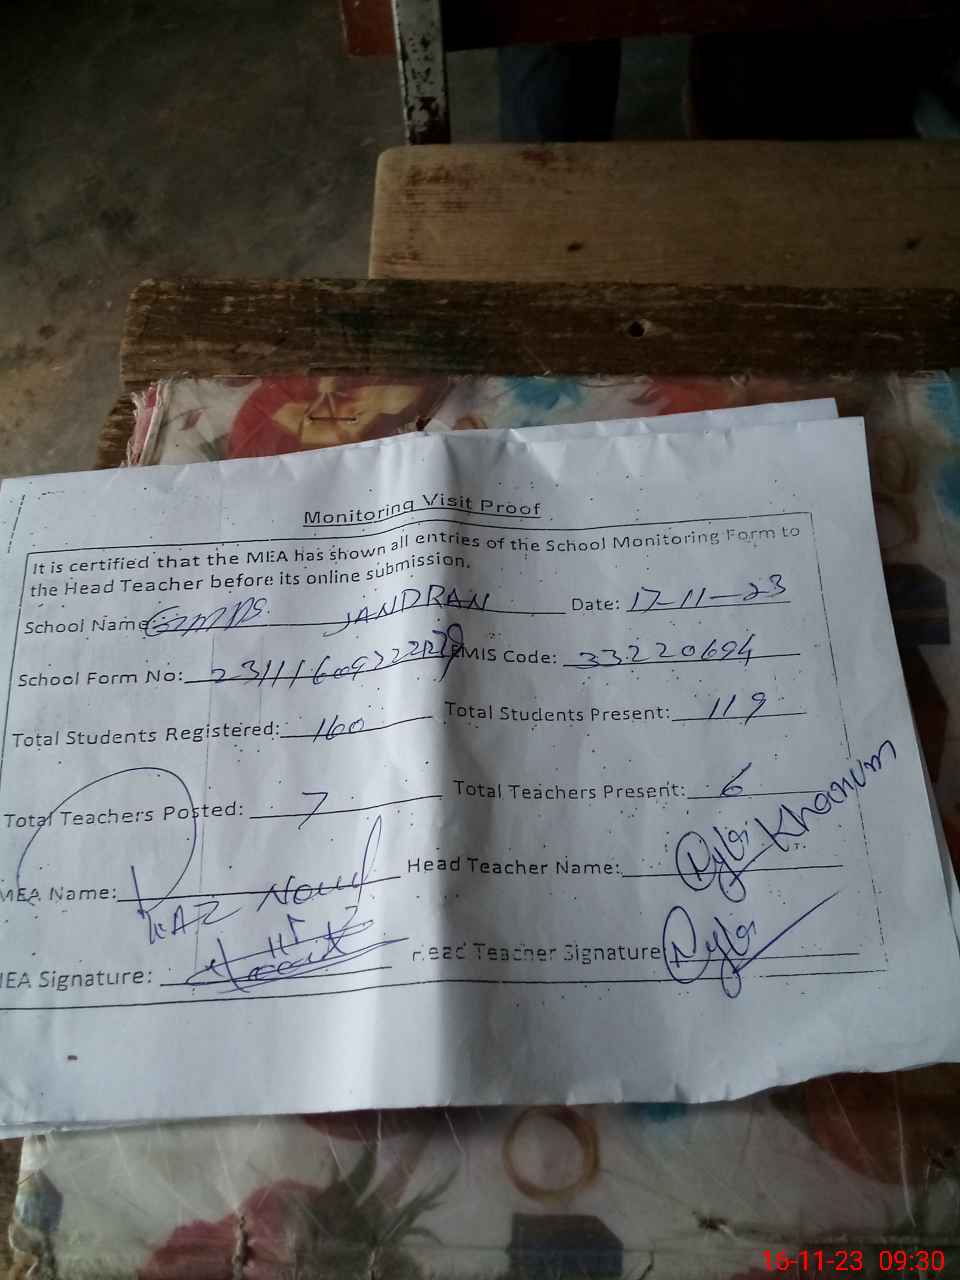 Monitoring Visit Proof
It is certified that the MEA has shown all entries of the School Monitoring Form to
the Head Teacher before its online submission.
School Name: GMPS JANDRAN Date: 17-11-23
School Form No: EMIS Code: 33220694
Total Students Registered: 160 Total Students Present: 119
Total Teachers Posted: 7 Total Teachers Present: 6
MEA Name: Head Teacher Name: Khanum
MEA Signature: Head Teacher Signature
16-11-23 09:30